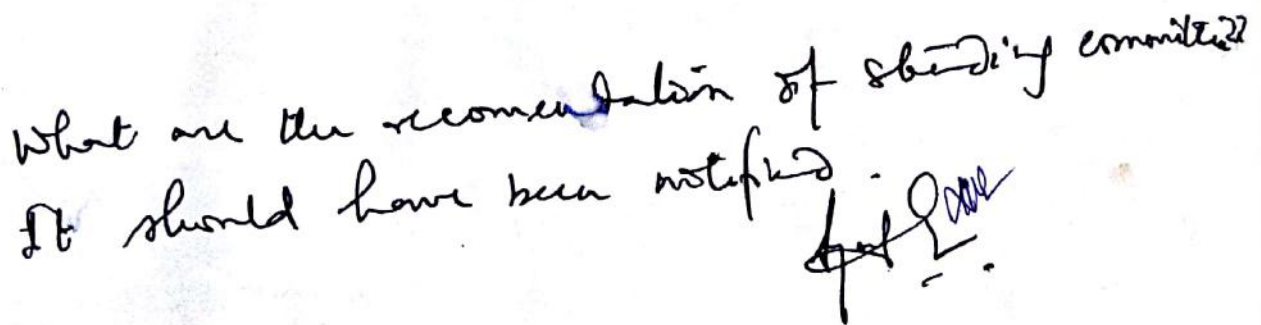 What are the recomendation of standing committee??
It should have been notified.